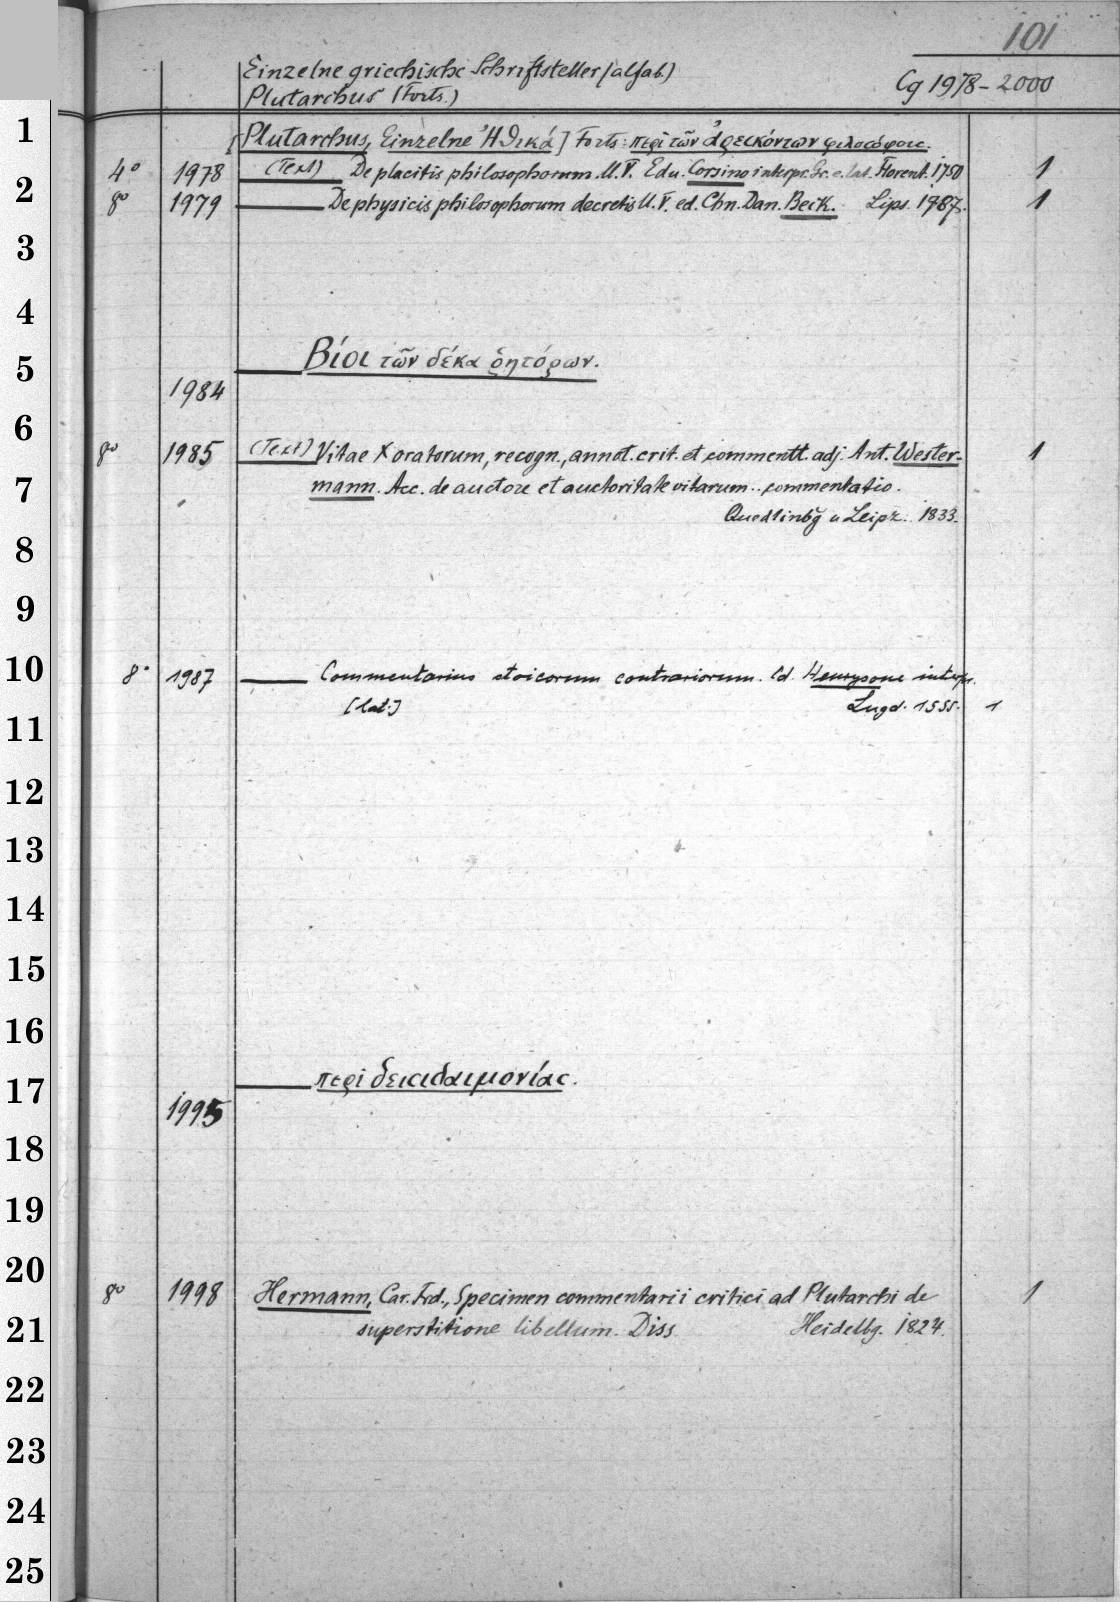 101
Einzelne griechische Schriftsteller (alfab.)
Plutarchus (Forts.)
Cg 1978-2000
[Plutarchus, Einzelne Ἠθικά] Forts: περὶ τῶν ἀρεσκόντων φιλοσόφοις.
4° 1978 (Text) De placitis philosophorum. ll. V. Edu. Corsino interpr. Gr. e. lat. Florent. 1750 1
8° 1979 De physicis philosophorum decretis ll. V. ed. Chn. Dan. Beck. Lips. 1787. 1
Βίοι τῶν δέκα ῥητόρων.
1984
8° 1985 (Text) Vitae X oratorum, recogn., annot. crit. et commentt. adj. Ant. Wester- 1
mann. Acc. de auctore et auctoritate vitarum.. commentatio.
Quedlinbg u Leipz. 1833.
8° 1987 Commentarius stoicorum contrariorum. Ed. Henrysone interpr.
[lat.] Lugd. 1555. 1
περὶ δεισιδαιμονίας.
1995
8° 1998 Hermann, Car. Frd., Specimen commentarii critici ad Plutarchi de 1
superstitione libellum. Diss. Heidelbg. 1824.
1
2
3
4
5
6
7
8
9
10
11
12
13
14
15
16
17
18
19
20
21
22
23
24
25